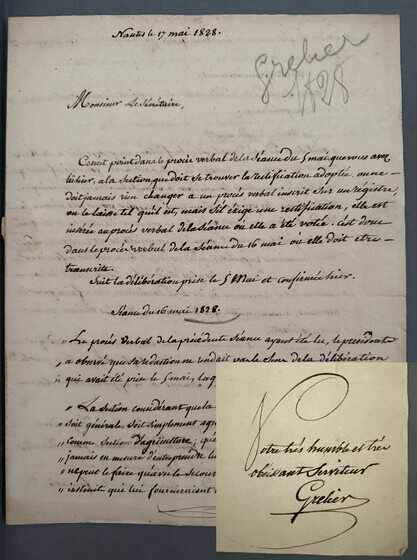 Nantes le 17 mai 1828.
Grelier
1828
Monsieur Le Secrétaire,
Ce n'est point dans le procès verbal de la Séance du 5 mai que vous avez
à la Section que doit se trouver la rectification adoptée, on ne
doit jamais rien changer a un procès verbal inscrit Sur un registre,
on le laisse tel qu'il est, mais s'il exige une rectification, elle est
insérée au procès verbal de la Séance ou elle a été votée. c'est donc
dans le procès verbal de la Séance du 16 mai ou elle doit etre
transcrite.
Suit la délibération prise le 5 Mai et confirmée hier.
Séance du 16 mai 1828.
Le procès Verbal de la précédente Séance ayant été lu, le président
a observé que sa rédaction ne rendait pas le Sens de la délibération
qui avait été prise le 5 mai,
„ La Section considérant que la
„ soit générale, soit simplement
„ comme Section d'agriculture,
„ jamais en mesure d'entreprendre
„ ne peut le faire qu'avec le secours
„ institut que lui fourniraient
Votre très humble et très
obéissant Serviteur
Grelier